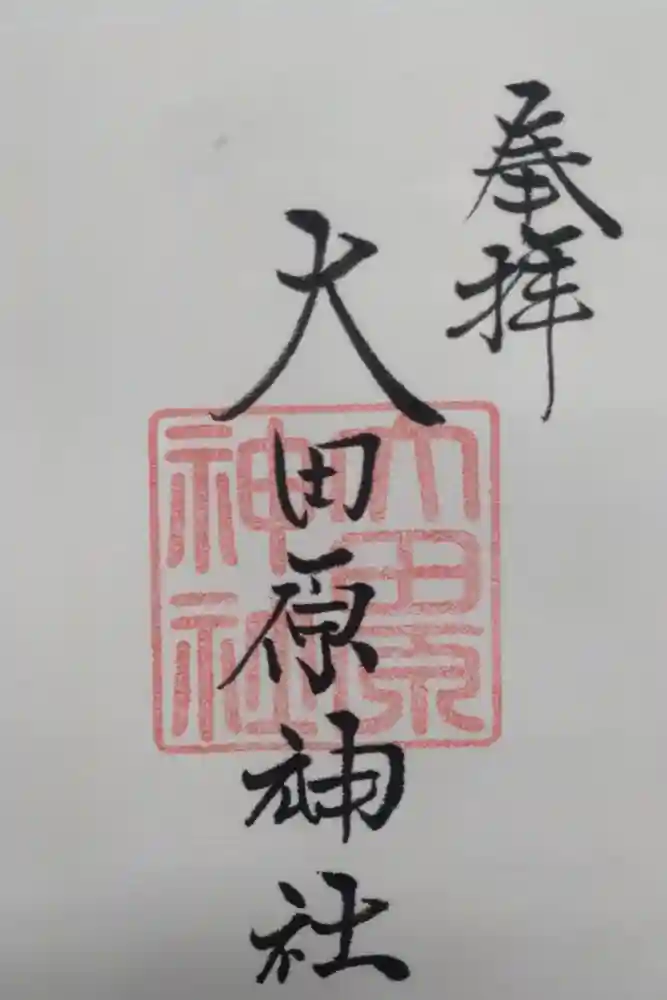 奉拝
大田原神社
大田原
神社